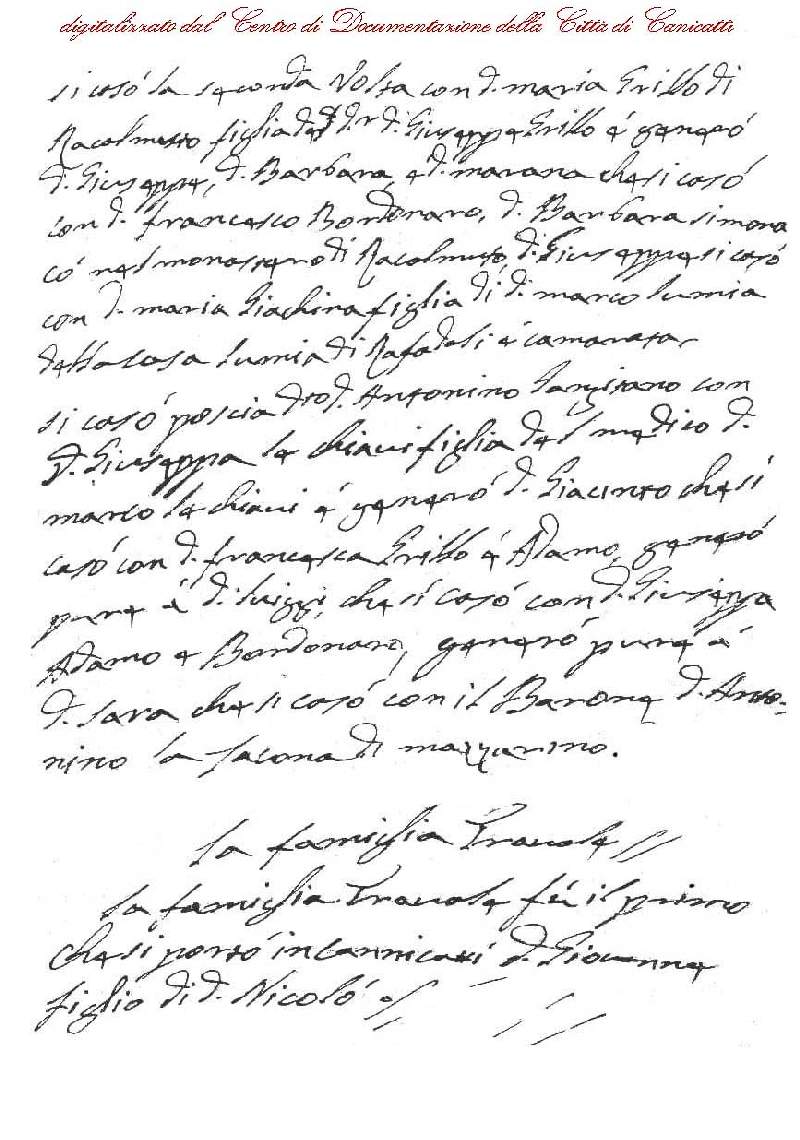 digitalizzato dal Centro di Documentazione della Città di Canicattì
si casó la seconda Volta con d. maria Grillo di
Racalmuto figlia del Dr d. Giuseppe Grillo é generó
d. Giuseppe, d. Barbara, e d. marana che si casó
con d. francesco Bordonaro, d. Barbara si mona
có nel monastero di Racalmuto, d. Giuseppe si casó
con d. maria Giachina figlia di d. marco lumia
della Casa lumia di Rafadali é camarata
si casó poscia dto d. Antonino
con
D. Giuseppa la chiavi figlia del medico d.
marco la chiavi é generó d. Giacinto che si
casó con d. francesca Grillo é Adamo, generó
pure á d. luiggi, che si casó con d. Giuseppa
Adamo e Bordonaro, generó pure á
d. Sara che si casó con il Barone d. Anto-
nino la
di mazzarino.
La famiglia Travale //
La famiglia Travale fú il primo
che si portó in Cannicatti d. Giovanne
figlio di d. Nicoló